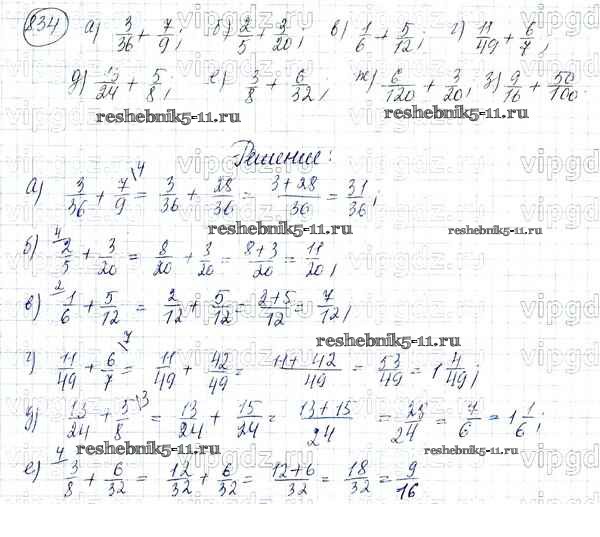 834 а) 3/36 + 7/9; б) 2/5 + 3/20; в) 1/6 + 5/12; г) 11/49 + 6/7;
д) 13/24 + 5/8; е) 3/8 + 6/32; ж) 6/120 + 3/20; з) 9/16 + 50/100.
reshebnik5-11.ru reshebnik5-11.ru
Решение:
а) 3/36 + 7/9 \4 = 3/36 + 28/36 = 3+28/36 = 31/36;
reshebnik5-11.ru reshebnik5-11.ru
б) 4/ 2/5 + 3/20 = 8/20 + 3/20 = 8+3/20 = 11/20;
в) 2/ 1/6 + 5/12 = 2/12 + 5/12 = 2+5/12 = 7/12;
reshebnik5-11.ru
г) 11/49 + 6/7 \7 = 11/49 + 42/49 = 11+42/49 = 53/49 = 1 4/49;
д) 13/24 + 5/8 \3 = 13/24 + 15/24 = 13+15/24 = 28/24 = 7/6 = 1 1/6;
reshebnik5-11.ru reshebnik5-11.ru
е) 4/ 3/8 + 6/32 = 12/32 + 6/32 = 12+6/32 = 18/32 = 9/16